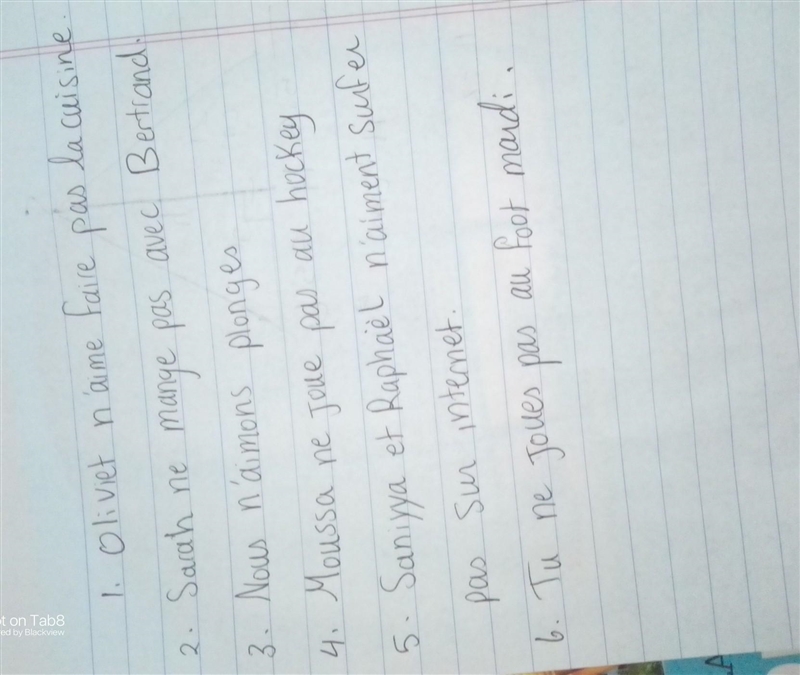 1. Oliviet n'aime faire pas la cuisine.
2. Sarah ne mange pas avec Bertrand.
3. Nous n'aimons plonges
4. Moussa ne joue pas au hockey
5. Saniyya et Raphaël n'aiment surfer
pas sur internet.
6. Tu ne joues pas au foot mardi.
ot on Tab8
ed by Blackview